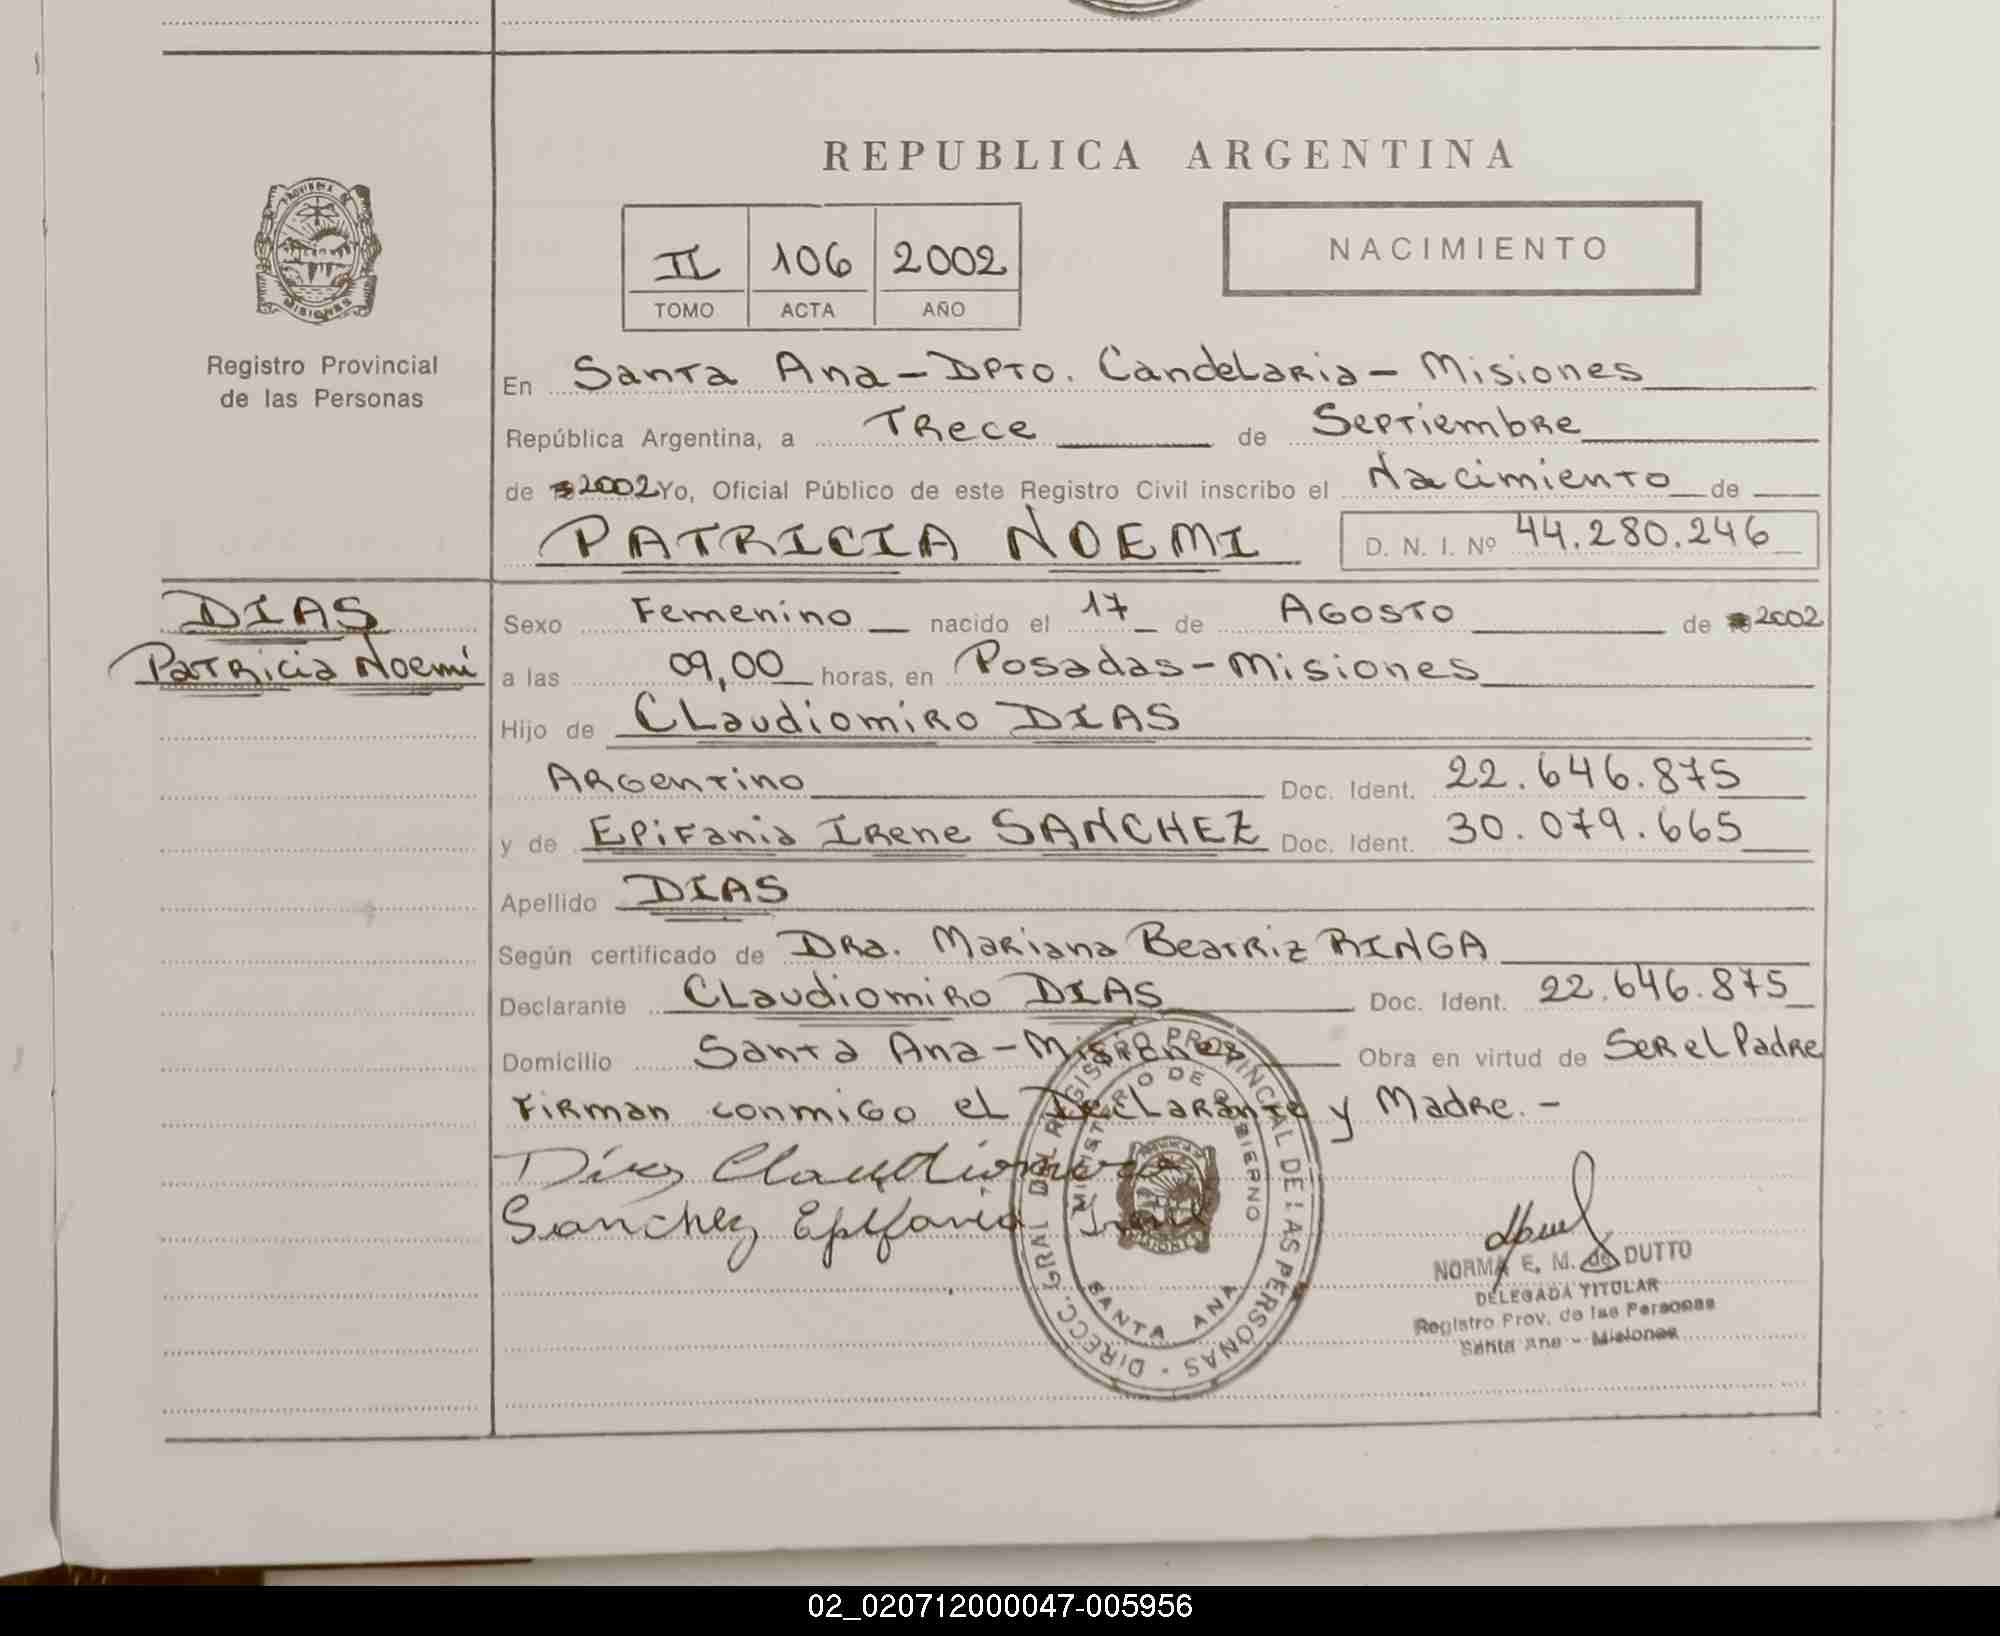 REPUBLICA ARGENTINA
PROVINCIA DE MISIONES
Registro Provincial
de las Personas
II 106 2002
TOMO ACTA AÑO
NACIMIENTO
En Santa Ana - Dpto. Candelaria - Misiones
República Argentina, a Trece de Septiembre
de 2002 Yo, Oficial Público de este Registro Civil inscribo el Nacimiento de
PATRICIA NOEMI D. N. I. Nº 44.280.246
DIAS
Patricia Noemí
Sexo Femenino nacido el 17 de Agosto de 2002
a las 09,00 horas, en Posadas - Misiones
Hijo de Claudiomiro DIAS
Argentino Doc. Ident. 22.646.875
y de Epifania Irene SANCHEZ Doc. Ident. 30.079.665
Apellido DIAS
Según certificado de Dra. Mariana Beatriz RINGA
Declarante Claudiomiro DIAS Doc. Ident. 22.646.875
Domicilio Santa Ana - Misiones Obra en virtud de Ser el Padre
Firman conmigo el Declarante y Madre. -
Dias Claudiomiro
Sanchez Epifania Irene
DIRECC. GRAL DEL REGISTRO PROVINCIAL DE LAS PERSONAS -
MINISTERIO DE GOBIERNO
SANTA ANA
NORMA E. M. de DUTTO
DELEGADA TITULAR
Registro Prov. de las Personas
Santa Ana - Misiones
02_020712000047-005956